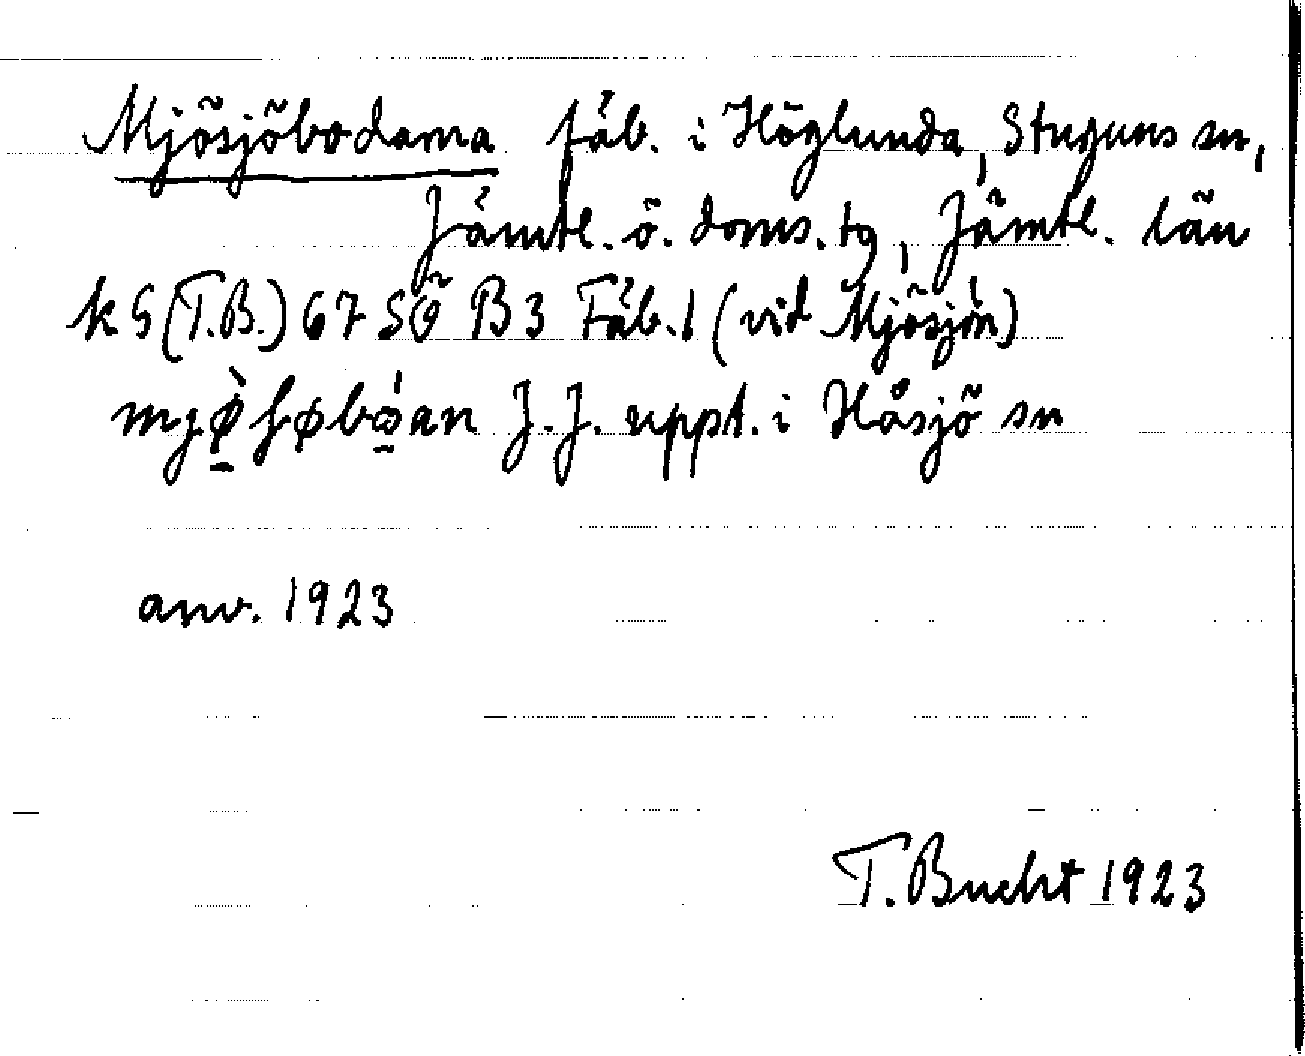 Mjösjöbodarna fäb. i Höglunda, Stuguns sn,
Jämtl. ö. doms. tg, Jämtl. län
k 5 (T.B.) 67 SÖ B 3 Fäb. 1 (vid Mjösjön)
mjø̱̀ʃøbǿ̱an J.J. uppt. i Håsjö sn
anv. 1923
T. Bucht 1923